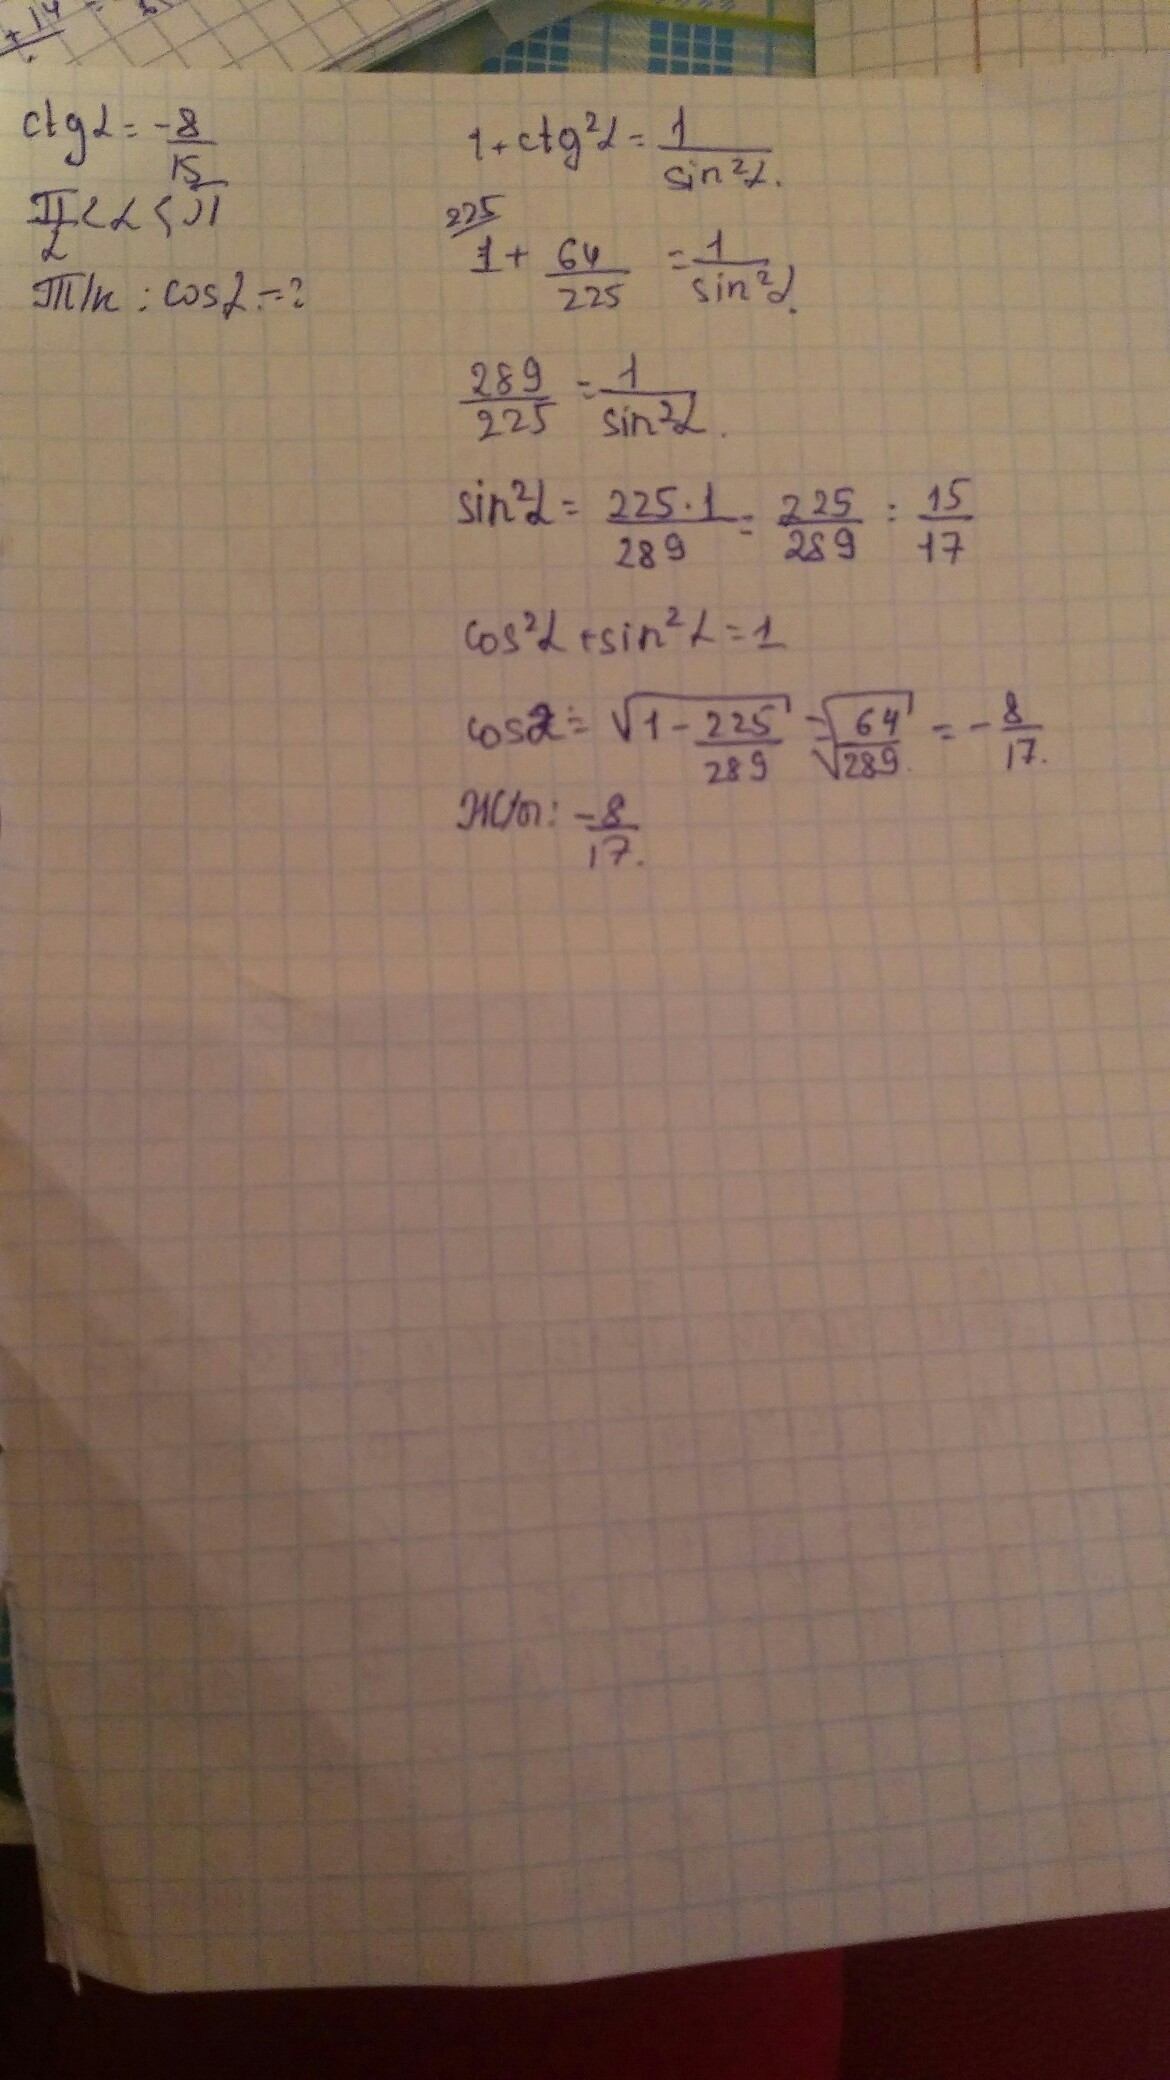 +14
ctgα = -8/15
π/2 < α < π
Т/к : cosα - ?
1 + ctg²α = 1/sin²α.
225
1 + 64/225 = 1/sin²α.
289/225 = 1/sin²α.
sin²α = 225·1/289 = 225/289 = 15/17
cos²α + sin²α = 1
cosα = √1 - 225/289 = √64/289. = - 8/17.
Ж/бі: -8/17.